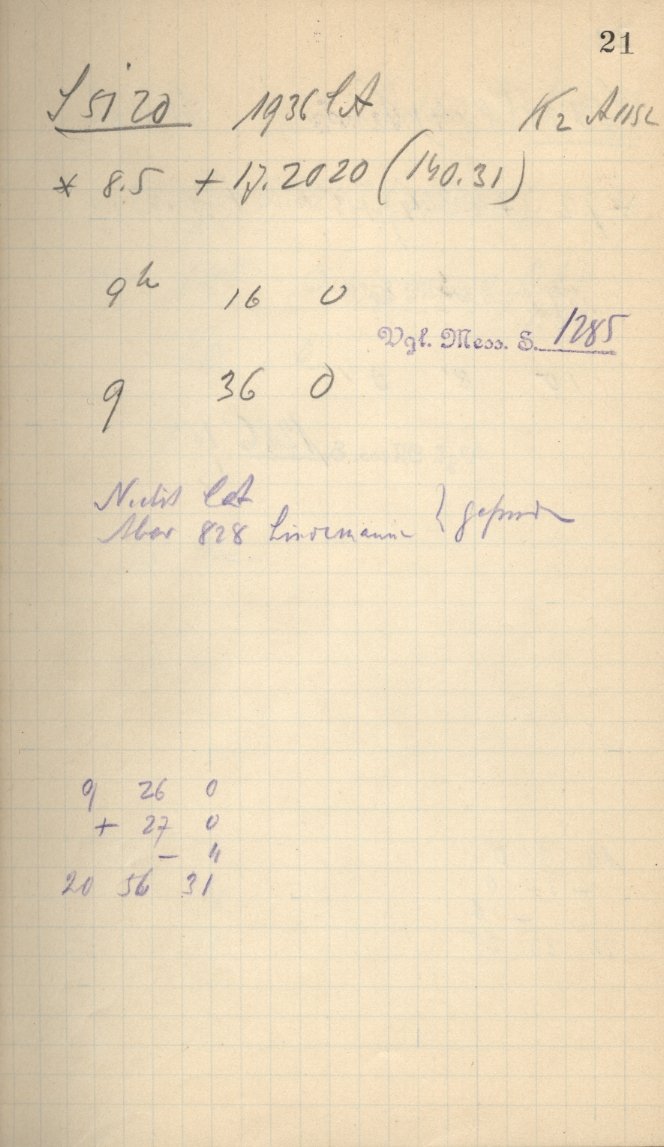 21
1936 CA K2 A1152
* 8.5 + 17.2020 (140.31)
9h 16 0
Vgl. Mess. S. 1285
9 36 0
Nicht CA
Aber 828 Lindemann } gefunden
9 26 0
+ 27 0
- 4
20 56 31